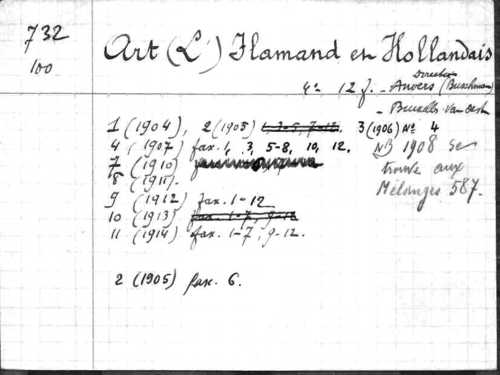 732
100
Art (L') Flamand en Hollandais
4° 12 f. - Direction
Anvers (Buschmann)
- Bruxelles Van Oest
1 (1904), 2 (1905) 1, 3-5, 7-12. 3 (1906) N° 4
4 (1907) fax. 1, 3, 5-8, 10, 12.
NB 1908 se
trouve aux
Mélanges 587.
7 (1910)
8 (1911).
9 (1912) fax. 1-12
10 (1913) fax. 1-7, 9-12
11 (1914) fax. 1-7, 9-12.
2 (1905) fax. 6.